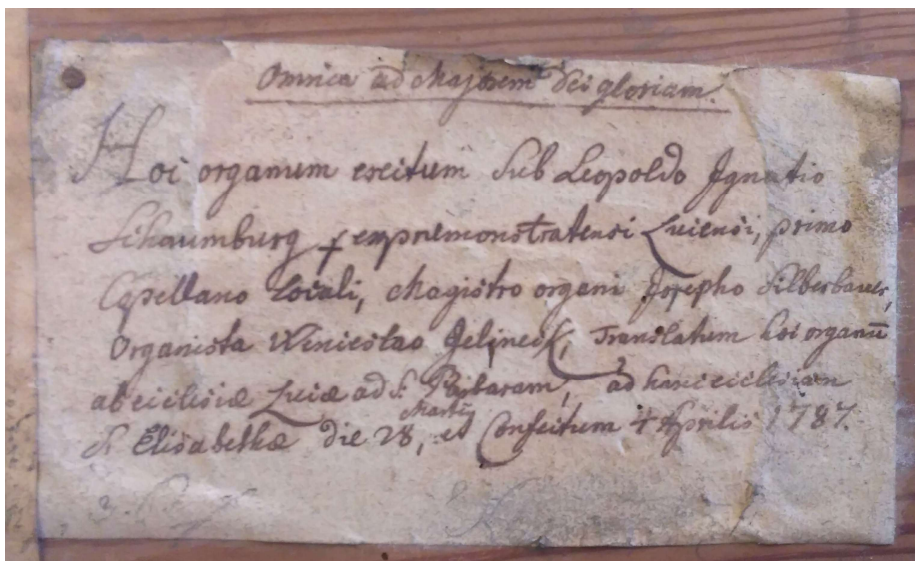 Omnia ad Majorem Dei gloriam.
Hoc organum erectum sub Leopoldo Ignatio
Schaumburg expremonstratensi Lucensi, primo
Capellano Locali, Magistro organi Josepho Silberbauer,
Organista Wenceslao Jelineck, Translatum hoc organū
ab ecclesiæ Lucæ ad S. Barbaram, ad hanc ecclesiam
S. Elisabethæ die 28 Martij, et Confectum 4 Aprilis 1787.